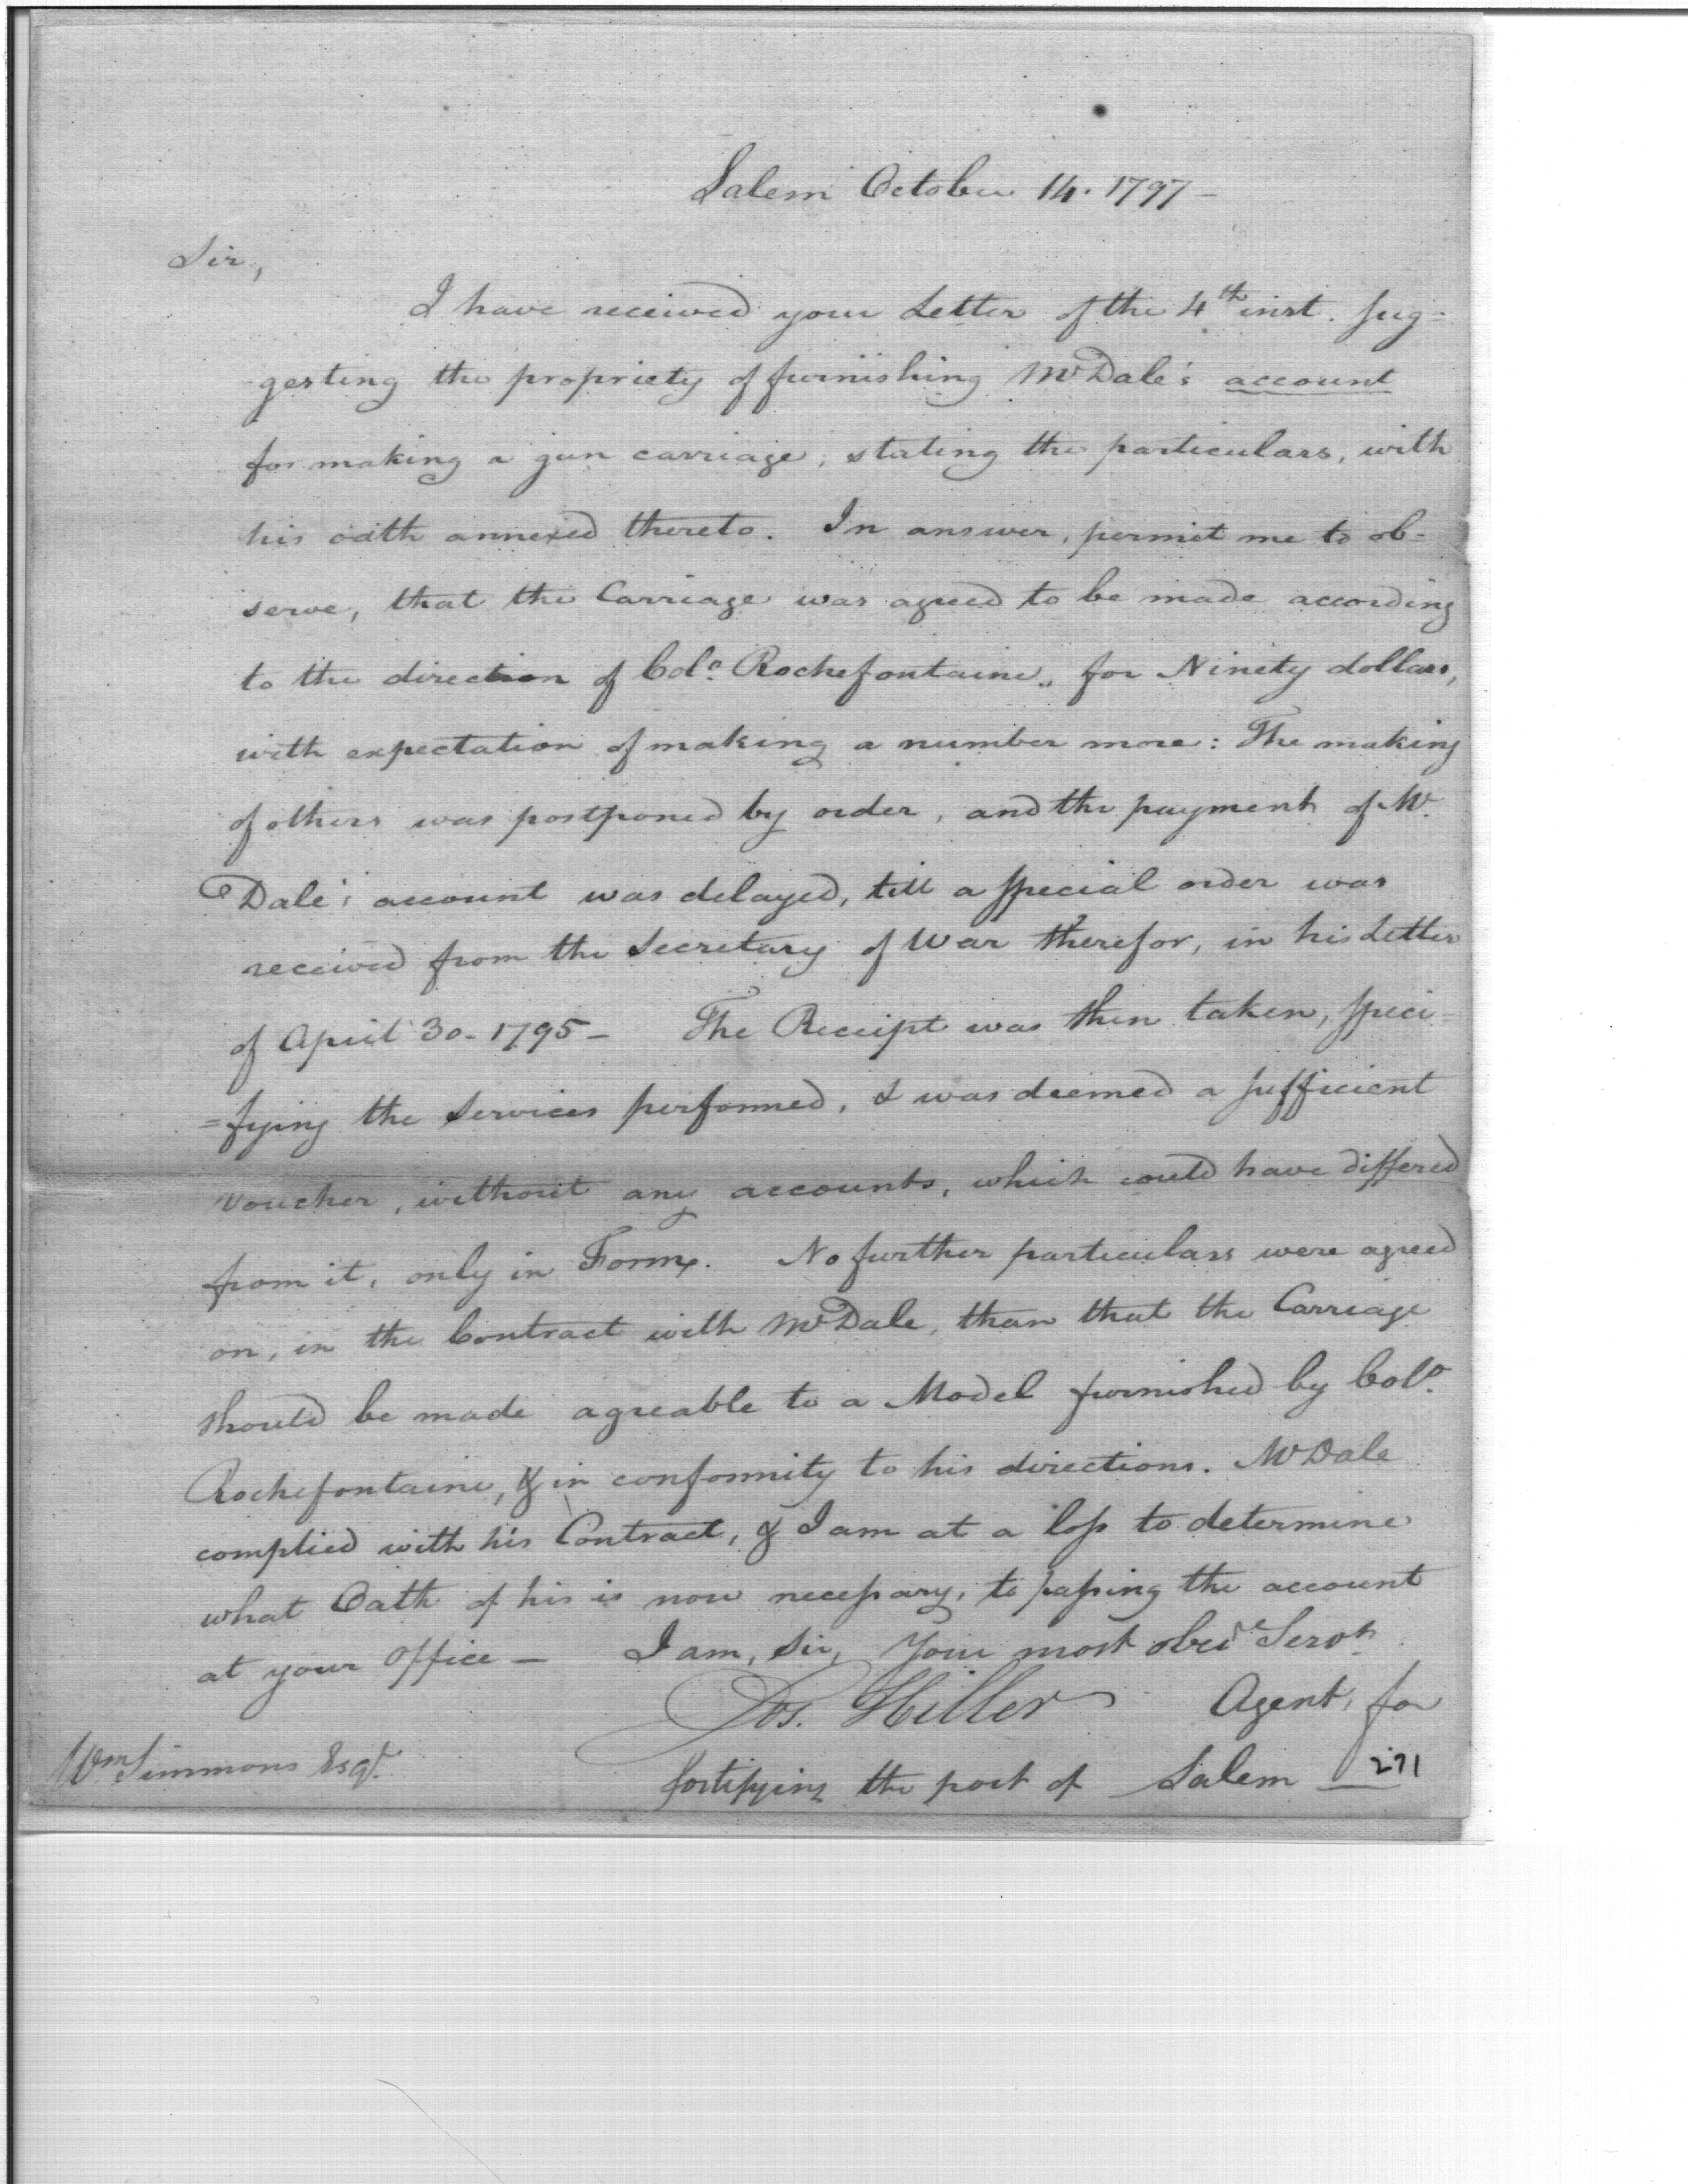 Salem October 14. 1797 -
Sir,
I have received your Letter of the 4th inst. sug=
gesting the propriety of furnishing Mr Dale's account
for making a gun carriage, stating the particulars, with
his oath annexed thereto. In answer, permit me to ob=
serve, that the Carriage was agreed to be made according
to the direction of Colo. Rochefontaine, for Ninety dollars,
with expectation of making a number more: The making
of others was postponed by order, and the payment of Mr.
Dale's account was delayed, till a special order was
received from the Secretary of War therefor, in his Letter
of April 30. 1795 - The Receipt was then taken, speci=
=fying the services performed, & was deemed a sufficient
voucher, without any accounts, which could have differed
from it, only in Form. No further particulars were agreed
on, in the Contract with Mr Dale, than that the Carriage
should be made agreable to a Model furnished by Colo.
Rochefontaine, & in conformity to his directions. Mr Dale
complied with his Contract, & I am at a loss to determine
what Oath of his is now necessary, to passing the account
at your Office - I am, Sir, Your most obed Servt
Jos. Hiller Agent, for
Wm Simmons Esqr.
fortifying the port of Salem
271